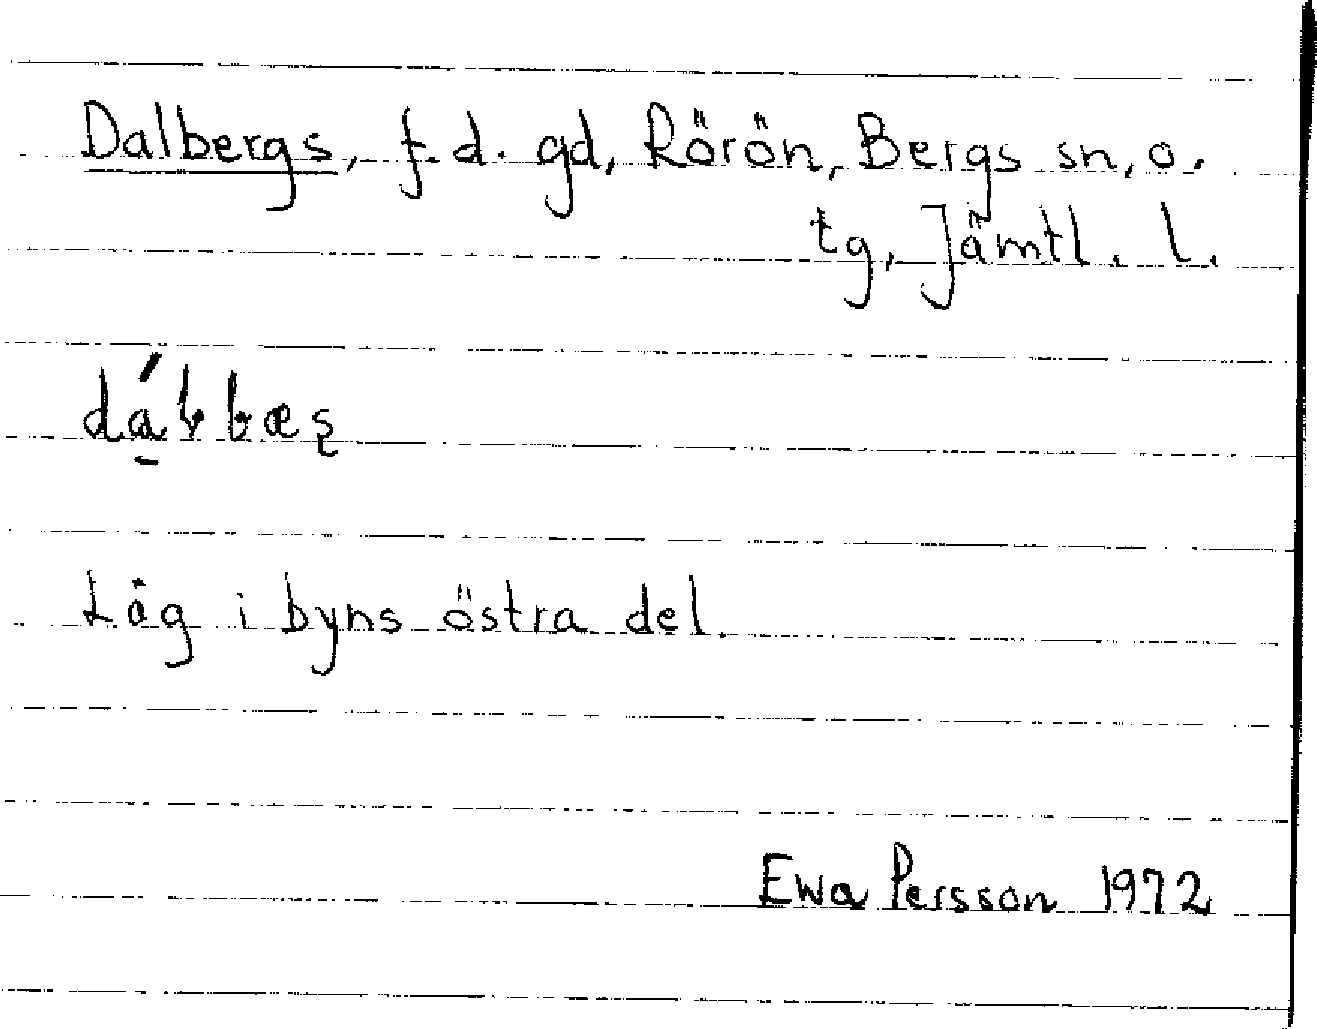 Dalbergs, f.d. gd, Rörön, Bergs sn, o.
tg, Jämtl. l.
Låg i byns östra del.
Ewa Persson 1972